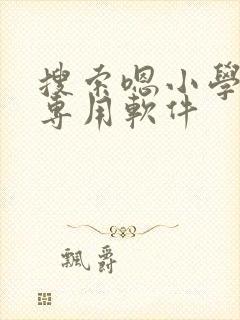 搜索嗯小學
專用軟件
飄爵